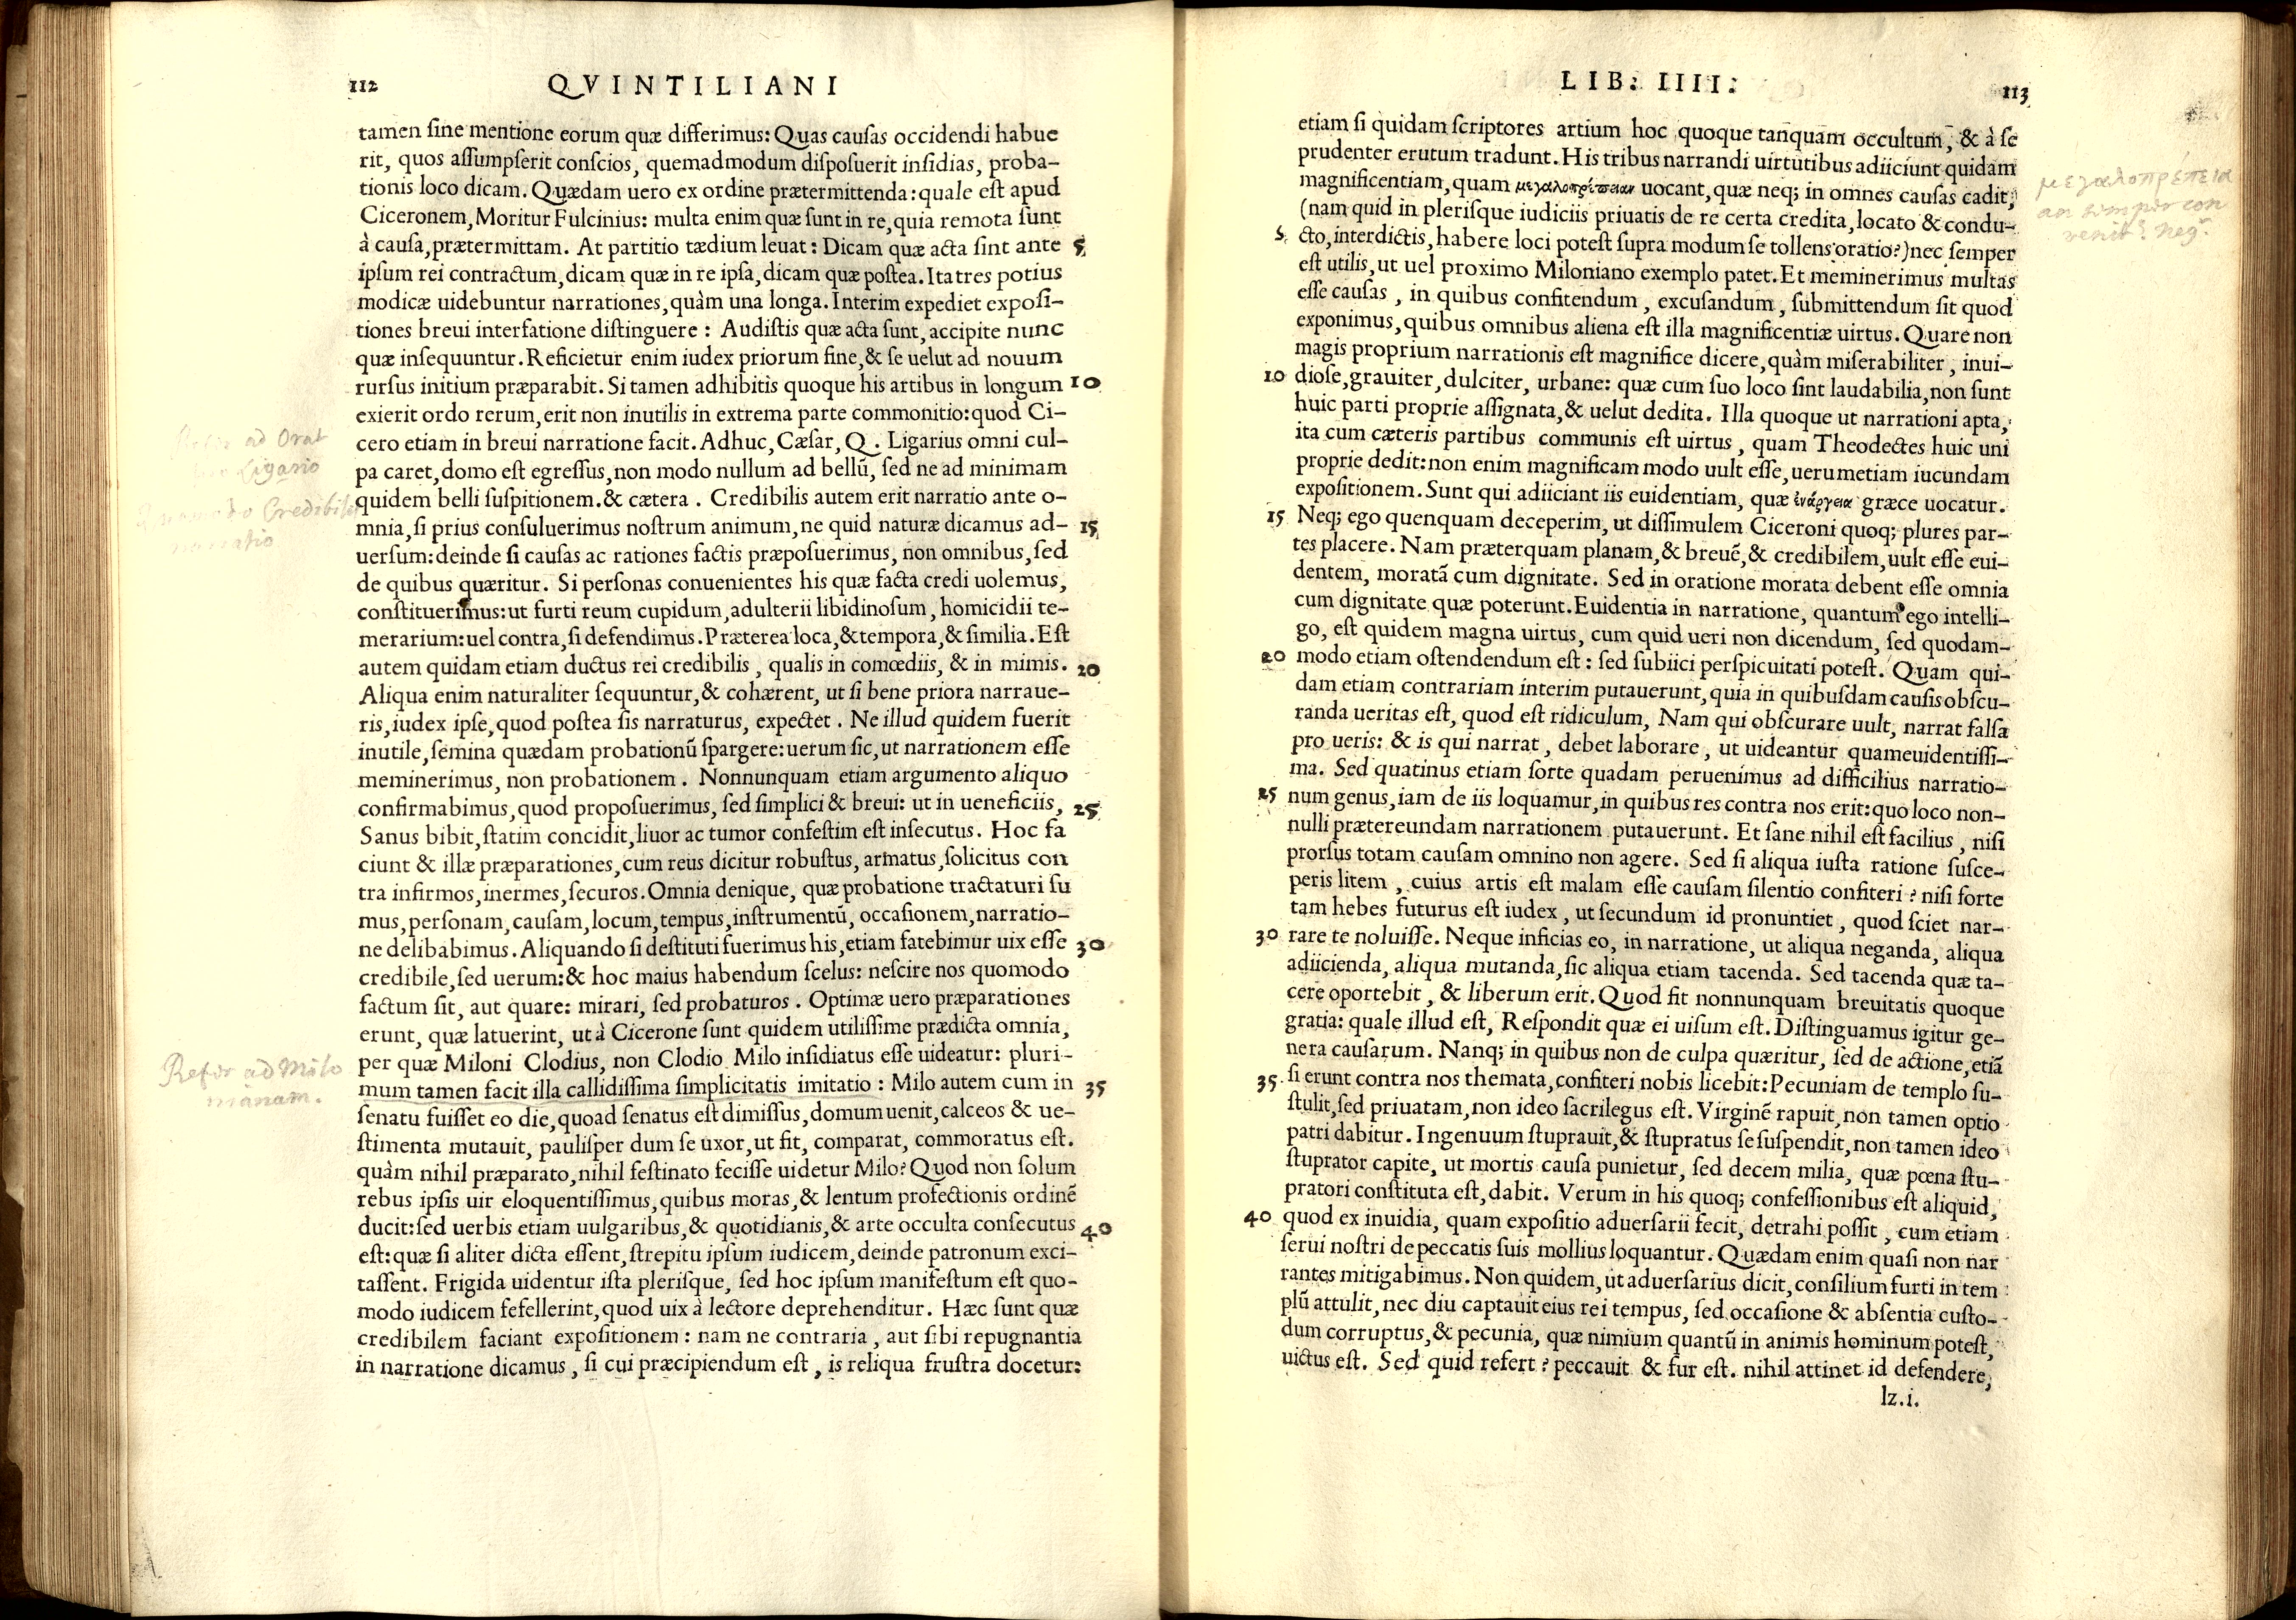 112 QVINTILIANI
tamen ſine mentione eorum quæ differimus: Quas cauſas occidendi habue
rit, quos aſſumpſerit conſcios, quemadmodum diſpoſuerit inſidias, proba-
tionis loco dicam. Quædam uero ex ordine prætermittenda: quale eſt apud
Ciceronem, Moritur Fulcinius: multa enim quæ ſunt in re, quia remota ſunt
à cauſa, prætermittam. At partitio tædium leuat: Dicam quæ acta ſint ante 5
ipſum rei contractum, dicam quæ in re ipſa, dicam quæ poſtea. Ita tres potius
modicæ uidebuntur narrationes, quàm una longa. Interim expediet expoſi-
tiones breui interfatione diſtinguere: Audiſtis quæ acta ſunt, accipite nunc
quæ inſequuntur. Reficietur enim iudex priorum fine, & ſe uelut ad nouum
rurſus initium præparabit. Si tamen adhibitis quoque his artibus in longum 10
exierit ordo rerum, erit non inutilis in extrema parte commonitio: quod Ci-
cero etiam in breui narratione facit. Adhuc, Cæſar, Q. Ligarius omni cul-
pa caret, domo eſt egreſſus, non modo nullum ad bellū, ſed ne ad minimam
quidem belli ſuſpitionem. & cætera. Credibilis autem erit narratio ante o-
mnia, ſi prius conſuluerimus noſtrum animum, ne quid naturæ dicamus ad- 15
uerſum: deinde ſi cauſas ac rationes factis præpoſuerimus, non omnibus, ſed
de quibus quæritur. Si perſonas conuenientes his quæ facta credi uolemus,
conſtituerimus: ut furti reum cupidum, adulterii libidinoſum, homicidii te-
merarium: uel contra, ſi defendimus. Præterea loca, & tempora, & ſimilia. Eſt
autem quidam etiam ductus rei credibilis, qualis in comœdiis, & in mimis. 20
Aliqua enim naturaliter ſequuntur, & cohærent, ut ſi bene priora narraue-
ris, iudex ipſe, quod poſtea ſis narraturus, expectet. Ne illud quidem fuerit
inutile, ſemina quædam probationū ſpargere: uerum ſic, ut narrationem eſſe
meminerimus, non probationem. Nonnunquam etiam argumento aliquo
confirmabimus, quod propoſuerimus, ſed ſimplici & breui: ut in ueneficiis, 25
Sanus bibit, ſtatim concidit, liuor ac tumor confeſtim eſt inſecutus. Hoc fa
ciunt & illæ præparationes, cum reus dicitur robuſtus, armatus, ſolicitus con
tra infirmos, inermes, ſecuros. Omnia denique, quæ probatione tractaturi ſu
mus, perſonam, cauſam, locum, tempus, inſtrumentū, occaſionem, narratio-
ne delibabimus. Aliquando ſi deſtituti fuerimus his, etiam fatebimur uix eſſe 30
credibile, ſed uerum: & hoc maius habendum ſcelus: neſcire nos quomodo
factum ſit, aut quare: mirari, ſed probaturos. Optimæ uero præparationes
erunt, quæ latuerint, ut à Cicerone ſunt quidem utiliſſime prædicta omnia,
per quæ Miloni Clodius, non Clodio Milo inſidiatus eſſe uideatur: pluri-
mum tamen facit illa callidiſſima ſimplicitatis imitatio: Milo autem cum in 35
ſenatu fuiſſet eo die, quoad ſenatus eſt dimiſſus, domum uenit, calceos & ue-
ſtimenta mutauit, pauliſper dum ſe uxor, ut fit, comparat, commoratus eſt.
quàm nihil præparato, nihil feſtinato feciſſe uidetur Milo? Quod non ſolum
rebus ipſis uir eloquentiſſimus, quibus moras, & lentum profectionis ordinē
ducit: ſed uerbis etiam uulgaribus, & quotidianis, & arte occulta conſecutus 40
eſt: quæ ſi aliter dicta eſſent, ſtrepitu ipſum iudicem, deinde patronum exci-
taſſent. Frigida uidentur iſta pleriſque, ſed hoc ipſum manifeſtum eſt quo-
modo iudicem fefellerint, quod uix à lectore deprehenditur. Hæc ſunt quæ
credibilem faciant expoſitionem: nam ne contraria, aut ſibi repugnantia
in narratione dicamus, ſi cui præcipiendum eſt, is reliqua fruſtra docetur:
ad Orat
Ligario
Quomodo Credibilis
narratio
Refer ad Milo
nianam.
LIB: IIII: 113
etiam ſi quidam ſcriptores artium hoc quoque tanquam occultum, & à ſe
prudenter erutum tradunt. His tribus narrandi uirtutibus adiiciunt quidam
magnificentiam, quam μεγαλοπρέπειαν uocant, quæ neq; in omnes cauſas cadit,
(nam quid in pleriſque iudiciis priuatis de re certa credita, locato & condu-
5 cto, interdictis, habere loci poteſt ſupra modum ſe tollens oratio?) nec ſemper
eſt utilis, ut uel proximo Miloniano exemplo patet. Et meminerimus multas
eſſe cauſas, in quibus confitendum, excuſandum, ſubmittendum ſit quod
exponimus, quibus omnibus aliena eſt illa magnificentiæ uirtus. Quare non
magis proprium narrationis eſt magnifice dicere, quàm miſerabiliter, inui-
10 dioſe, grauiter, dulciter, urbane: quæ cum ſuo loco ſint laudabilia, non ſunt
huic parti proprie aſſignata, & uelut dedita. Illa quoque ut narrationi apta,
ita cum cæteris partibus communis eſt uirtus, quam Theodectes huic uni
proprie dedit: non enim magnificam modo uult eſſe, uerumetiam iucundam
expoſitionem. Sunt qui adiiciant iis euidentiam, quæ ἐνάργεια græce uocatur.
15 Neq; ego quenquam deceperim, ut diſſimulem Ciceroni quoq; plures par-
tes placere. Nam præterquam planam, & breuē, & credibilem, uult eſſe eui-
dentem, moratā cum dignitate. Sed in oratione morata debent eſſe omnia
cum dignitate quæ poterunt. Euidentia in narratione, quantum ego intelli-
go, eſt quidem magna uirtus, cum quid ueri non dicendum, ſed quodam-
20 modo etiam oſtendendum eſt: ſed ſubiici perſpicuitati poteſt. Quam qui-
dam etiam contrariam interim putauerunt, quia in quibuſdam cauſis obſcu-
randa ueritas eſt, quod eſt ridiculum, Nam qui obſcurare uult, narrat falſa
pro ueris: & is qui narrat, debet laborare, ut uideantur quameuidentiſſi-
ma. Sed quatinus etiam ſorte quadam peruenimus ad difficilius narratio-
25 num genus, iam de iis loquamur, in quibus res contra nos erit: quo loco non-
nulli prætereundam narrationem putauerunt. Et ſane nihil eſt facilius, niſi
prorſus totam cauſam omnino non agere. Sed ſi aliqua iuſta ratione ſuſce-
peris litem, cuius artis eſt malam eſſe cauſam ſilentio confiteri? niſi forte
tam hebes futurus eſt iudex, ut ſecundum id pronuntiet, quod ſciet nar-
30 rare te noluiſſe. Neque inficias eo, in narratione, ut aliqua neganda, aliqua
adiicienda, aliqua mutanda, ſic aliqua etiam tacenda. Sed tacenda quæ ta-
cere oportebit, & liberum erit. Quod fit nonnunquam breuitatis quoque
gratia: quale illud eſt, Reſpondit quæ ei uiſum eſt. Diſtinguamus igitur ge-
nera cauſarum. Nanq; in quibus non de culpa quæritur, ſed de actione, etiā
35 ſi erunt contra nos themata, confiteri nobis licebit: Pecuniam de templo ſu-
ſtulit, ſed priuatam, non ideo ſacrilegus eſt. Virginē rapuit, non tamen optio
patri dabitur. Ingenuum ſtuprauit, & ſtupratus ſe ſuſpendit, non tamen ideo
ſtuprator capite, ut mortis cauſa punietur, ſed decem milia, quæ pœna ſtu-
pratori conſtituta eſt, dabit. Verum in his quoq; confeſſionibus eſt aliquid,
40 quod ex inuidia, quam expoſitio aduerſarii fecit, detrahi poſſit, cum etiam
ſerui noſtri de peccatis ſuis mollius loquantur. Quædam enim quaſi non nar
rantes mitigabimus. Non quidem, ut aduerſarius dicit, conſilium furti in tem
plū attulit, nec diu captauit eius rei tempus, ſed occaſione & abſentia cuſto-
dum corruptus, & pecunia, quæ nimium quantū in animis hominum poteſt,
uictus eſt. Sed quid refert? peccauit & fur eſt. nihil attinet id defendere,
lz.i.
μεγαλοπρέπεια
an semper con
venit? neg.